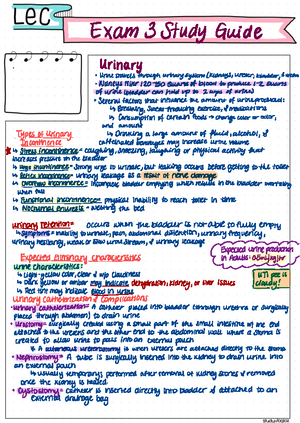 Lec
Exam 3 Study Guide
Urinary
• Urine travels through urinary system (kidneys, ureter, bladder,
• Kidneys filter 120-150 quarts of blood to produce 1-2 quarts
of urine (bladder can hold up to 2 cups of urine)
• Several factors that influence the amount of urine produced:
↳ Breathing, stress, medications
↳ Consumption of certain foods → change color or odor,
and amount
↳ Drinking a large amount of fluid, alcohol, &
caffeinated beverages may increase urine volume
Types of Urinary
Incontinence
★ Stress Incontinence → coughing, sneezing, laughing or physical activity that
increases pressure in the bladder
• Urge Incontinence → Strong urge to urinate, but leaking occurs before getting to the toilet
• Reflex Incontinence → urinary leakage as a result of nerve damage
• Overflow Incontinence → Incomplete bladder emptying which results in the bladder
• Functional Incontinence → physical inability to reach toilet in time
• Nocturnal Enuresis → wetting the bed
Urinary retention → occurs when the bladder is not able to fully empty
↳ Symptoms → inability to urinate, pain, abdominal distention, urinary frequency,
urinary hesitancy, weak or slow urine stream, & urinary leakage
Expected urine production
in Adults:
Expected Elimination Characteristics
Urine characteristics:
↳ Light-yellow color, clear & w/o cloudiness
↳ Dark yellow or amber may indicate dehydration, kidney, or liver issues
↳ Red tint may indicate blood in urine
UTI pee is
cloudy!
Urinary Catheterization & Complications
• Urinary catheterization → A catheter placed into bladder through urethra or surgically
placed through abdomen) to drain urine
• Urostomy → surgically created using a small part of the small intestine w/ one end
attached to the ureters and the other end to the abdominal wall where a stoma is
created to allow urine to pass into an external pouch
↳ A cutaneous ureterostomy is when ureters are attached directly to the stoma
• Nephrostomy → A tube is surgically inserted into the kidney to drain urine into
an external pouch
↳ Usually temporary, performed after removal of kidney stones & removed
once the kidney is healed
• Cystostomy → catheter is inserted directly into bladder & attached to an
external drainage bag